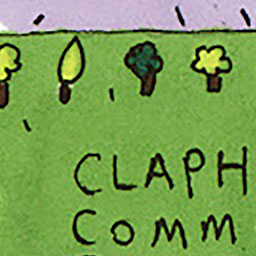 CLAPH
COMM